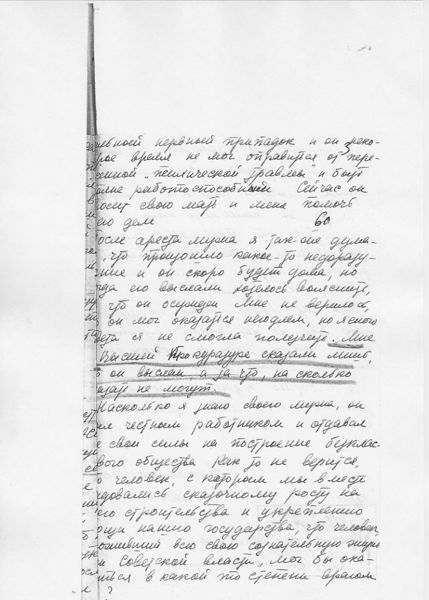 лебной нервной припадок и он неко-
рое время не мог оправится от пере-
сенной "психической травмы" и быт
олне работоспособным Сейчас он
росит свою мать и меня помочь
его деле
осле ареста мужа я так-же дума-
, что произошло какое-то недоразу-
ние и он скоро будет дома, но
гда его выслали хотелось выяснить,
что он осужден. Мне не верилось,
он мог оказатся негодяем, но ясного
вета я не смогла получить. Мне
Высшей Прокуратуре сказали лишь,
о он выслан а за что, на сколько
казать не могут.
Насколько я знаю своего мужа, он
ыл честным работником и отдавал
е свои силы на построение безклас
вого общества Как то не верится,
о человек, с которым мы вместе
адовались сказочному росту на
его строительства и укреплению
ощи нашего государства, что человек
посвятивший всю свою сознательную жизнь
Советской власти, мог бы ока-
иться в какой то степени врагом
?